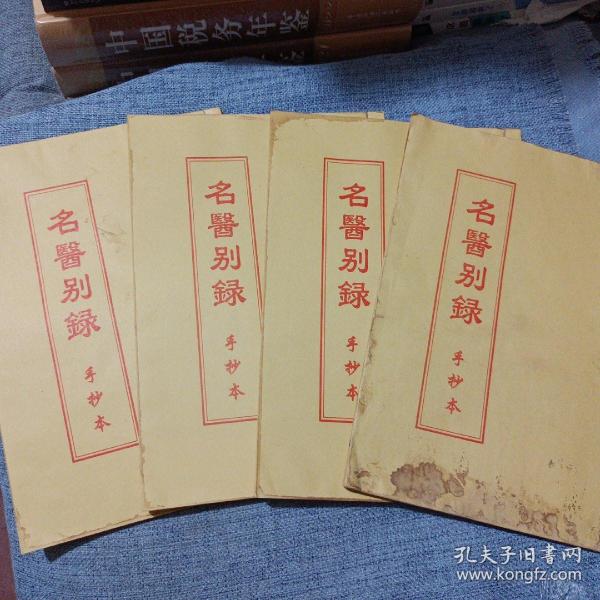 中国税务年鉴
名醫别録
手抄本
名醫别録
手抄本
名醫别録
手抄本
名醫别録
手抄本
孔夫子旧书网
www.kongfz.com